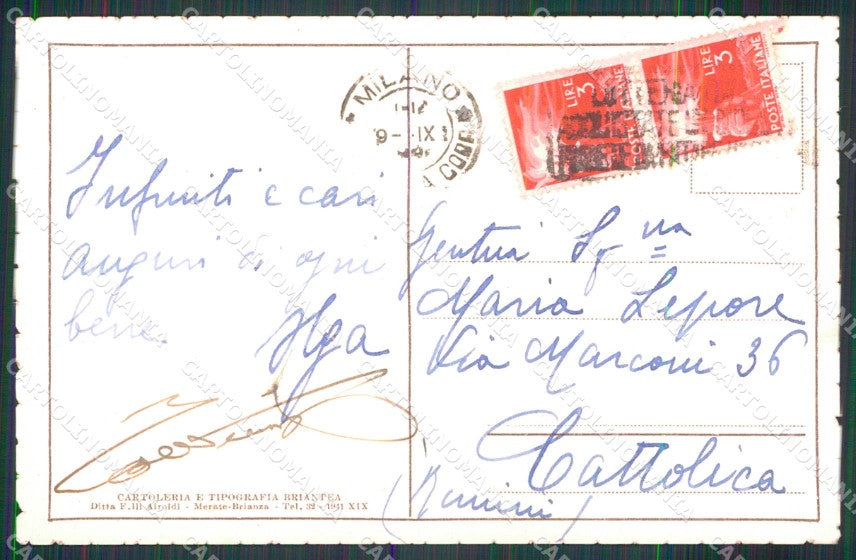 Infiniti e cari
auguri di ogni
bene.
Ilga
CARTOLERIA E TIPOGRAFIA BRIANTEA
Ditta F.lli Airoldi - Merate-Brianza - Tel. 32 - 1941 XIX
* MILANO *
9- IX
CORR
LIRE 3
LIRE 3
POSTE ITALIANE
Sig.na
Maria Lepore
Via Marconi 36
Cattolica
(Rimini)
CARTOLINOMANIA